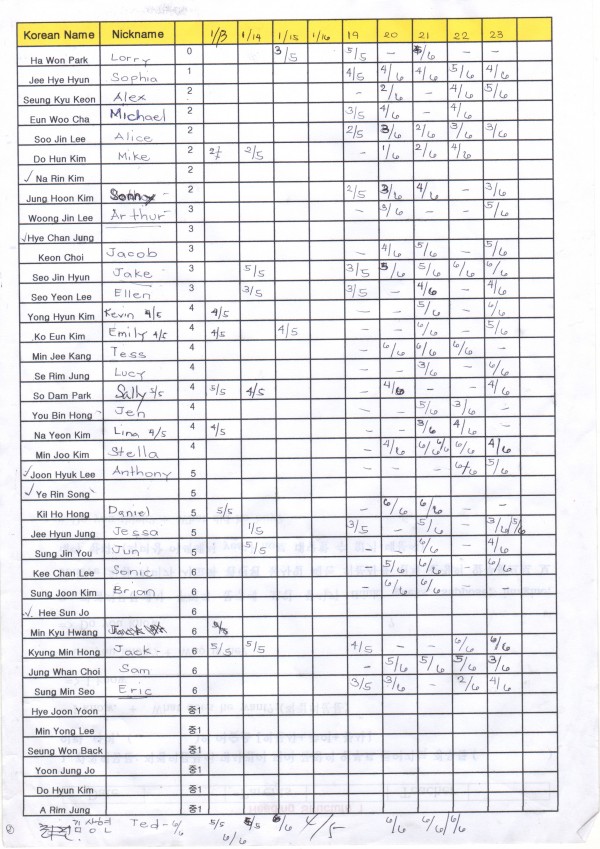 Korean Name Nickname 1/13 1/14 1/15 1/16 19 20 21 22 23
Ha Won Park Lorry 0 3/5 5/5 – 5/6 – –
Jee Hye Hyun Sophia 1 4/5 4/6 4/6 5/6 4/6
Seung Kyu Keon Alex 2 – 2/6 – 4/6 5/6
Eun Woo Cha Michael 2 3/5 4/6 – 4/6
Soo Jin Lee Alice 2 2/5 3/6 2/6 3/6 3/6
Do Hun Kim Mike 2 2/5 – 1/6 2/6 4/6
✓ Na Rin Kim 2
Jung Hoon Kim 2 2/5 3/6 4/6 – 3/6
Woong Jin Lee Arthur 3 – 3/6 – – 5/6
✓ Hye Chan Jung 3
Keon Choi Jacob 3 – 4/6 5/6 – 5/6
Seo Jin Hyun Jake 3 5/5 3/5 5/6 5/6 6/6 6/6
Seo Yeon Lee Ellen 3 3/5 3/5 – 4/6 – 4/6
Yong Hyun Kim Kevin 4/5 4 4/5 – – 5/6 – 6/6
Ko Eun Kim Emily 4/5 4 4/5 4/5 – – 6/6 – 5/6
Min Jee Kang Tess 4 – 6/6 6/6 6/6 –
Se Rim Jung Lucy 4 – – 3/6 – 6/6
So Dam Park Sally 5/5 4 5/5 4/5 – 4/6 – – 4/6
You Bin Hong Jen 4 – – 5/6 3/6 –
Na Yeon Kim Lina 4/5 4 4/5 – – 3/6 4/6 –
Min Joo Kim Stella 4 – 4/6 6/6 6/6 6/6 4/6
✓ Joon Hyuk Lee Anthony 5 – – – 6/6 5/6
✓ Ye Rin Song 5
Kil Ho Hong Daniel 5 5/5 – 6/6 6/6 – –
Jee Hyun Jung Jessa 5 1/5 3/5 – 5/6 – 3/6 5/6
Sung Jin You Jun 5 5/5 – – 6/6 – 4/6
Kee Chan Lee Sonic 6 – 5/6 6/6 – 6/6
Sung Joon Kim Brian 6 – 6/6 6/6 – –
✓ Hee Sun Jo 6
Min Kyu Hwang 6 5/5
Kyung Min Hong Jack 6 5/5 5/5 4/5 – – 6/6 6/6
Jung Whan Choi Sam 6 – 5/6 5/6 5/6 3/6
Sung Min Seo Eric 6 3/5 3/6 – 2/6 4/6
Hye Joon Yoon 중1
Min Yong Lee 중1
Seung Won Back 중1
Yoon Jung Jo 중1
Do Hyun Kim 중1
A Rim Jung 중1
Ted - 6/6 5/5 5/5 6/6 4/5 6/6 6/6 6/6
6/6